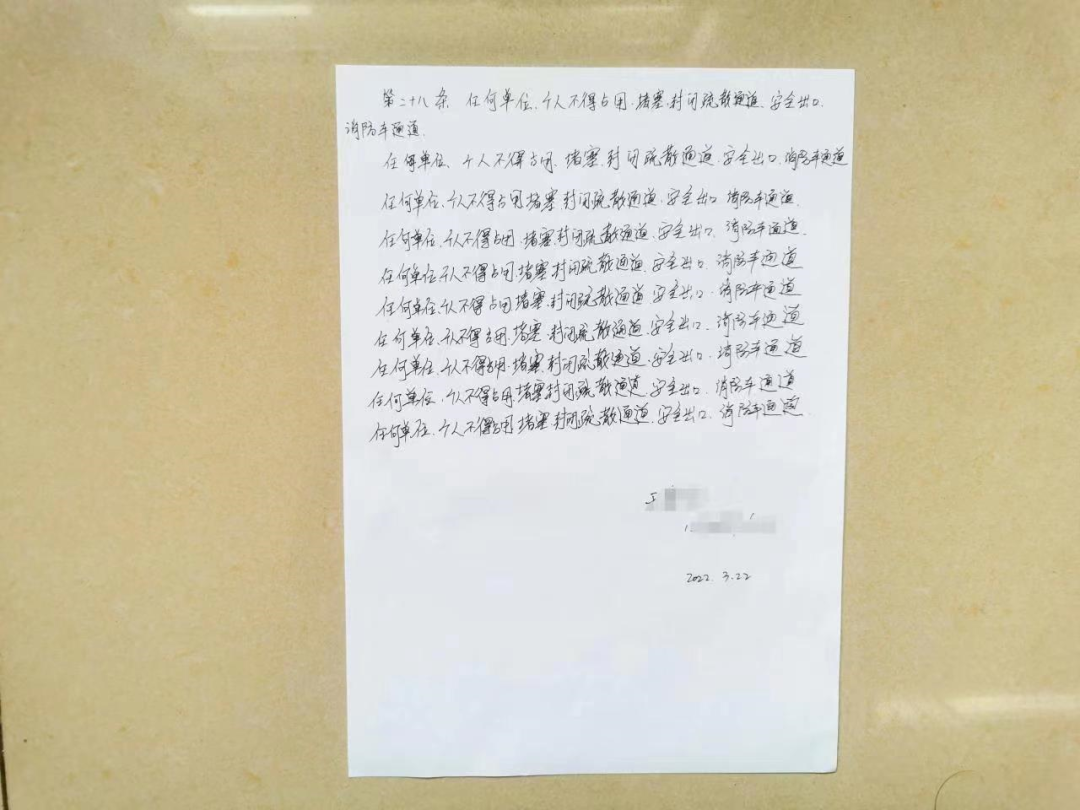 第二十八条 任何单位、个人不得占用、堵塞、封闭疏散通道、安全出口、
消防车通道.
任何单位、个人不得占用、堵塞、封闭疏散通道、安全出口、消防车通道
任何单位、个人不得占用堵塞封闭疏散通道、安全出口、消防车通道.
任何单位、个人不得占用、堵塞、封闭疏散通道、安全出口、消防车通道.
任何单位个人不得占用堵塞封闭疏散通道、安全出口、消防车通道
任何单位、个人不得占用堵塞、封闭疏散通道、安全出口、消防车通道
任何单位、个人不得占用、堵塞、封闭疏散通道、安全出口、消防车通道
任何单位、个人不得占用、堵塞、封闭疏散通道、安全出口、消防车通道
任何单位、个人不得占用、堵塞封闭疏散通道、安全出口、消防车通道
任何单位、个人不得占用堵塞封闭疏散通道、安全出口、消防车通道.
2022.3.22